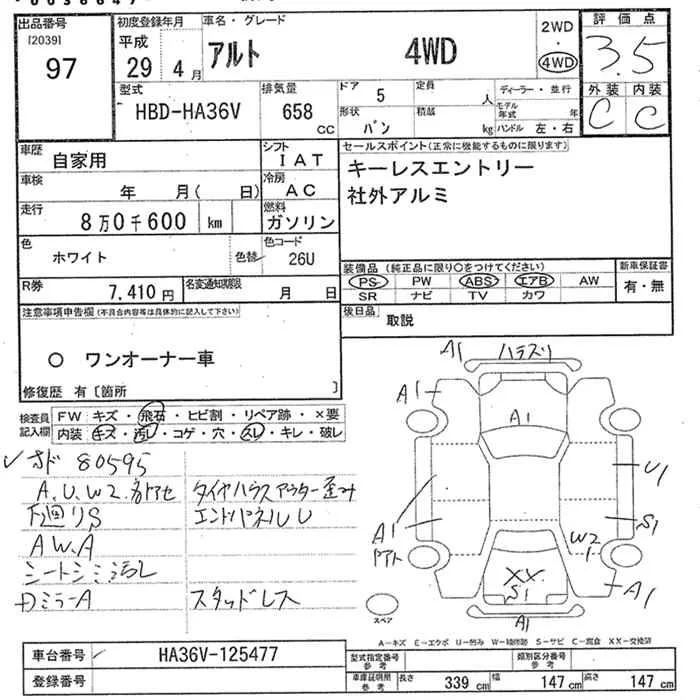 出品番号
[2039]
97
初度登録年月
平成
29 4月
車名・グレード
アルト 4WD
2WD
・
4WD
評価点
3.5
外装 内装
C C
型式
HBD-HA36V
排気量
658
CC
ドア
5
定員
人
形状
バン
積載
kg
ディーラー・並行
モデル年式 年
ハンドル 左・右
車歴
自家用
シフト
IAT
車検
年 月( 日)
冷房
AC
走行
8万0千600 km
燃料
ガソリン
色
ホワイト
色替
色コード
26U
R券
7,410円
名変通知期限
月 日
セールスポイント(正常に機能するものに限ります)
キーレスエントリー
社外アルミ
装備品(純正品に限り○をつけてください)
PS PW ABS エアB AW
SR ナビ TV カワ
新車保証書
有・無
後日品
取説
注意事項申告欄(不具合内容等は具体的に記入して下さい)
○ ワンオーナー車
修復歴 有〔箇所 〕
検査員
記入欄
FW キズ・飛石・ヒビ割・リペア跡・×要
内装 キズ・汚レ・コゲ・穴・スレ・キレ・破レ
80595
A,U,W2
タイヤハウスアウター歪み
下廻リS
エンドパネルU
A W,A
シートシミ汚レ
DミラーA
スタッドレス
A1
ハラズリ
A1
A1
A1
U1
S1
W2
XX
S1
A1
A1
スペア
A-キズ E-エクボ U-凹み W-補修跡 S-サビ C-腐食 XX-交換済
車台番号
HA36V-125477
登録番号
型式指定番号
参考
類別区分番号
参考
車庫証明用
参考
長さ 339 cm
幅 147 cm
高さ 147 cm